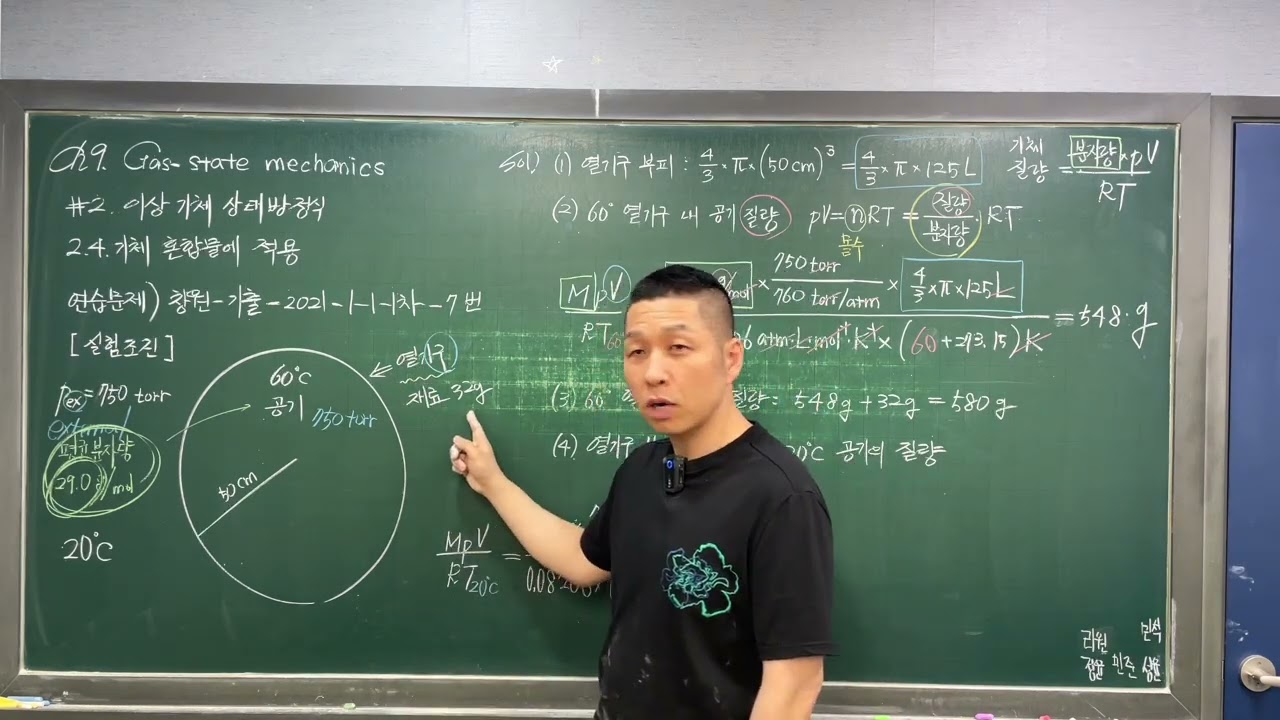 Ch9. Gas-state mechanics
#2. 이상 기체 상태방정식
2.4. 기체 혼합물에 적용
연습문제) 창원-기출-2021-1-1-1차-7번
[실험조건]
pex = 750 torr
external
평균분자량
29.0 g/mol
20°C
60°C
공기 750 torr
50 cm
열기구
재료 32g
Sol) (1) 열기구 부피 : 4/3 × π × (50 cm)³ = 4/3 × π × 125 L
(2) 60° 열기구 내 공기 질량 pV = nRT = 질량/분자량 · RT
몰수
기체 질량 = 분자량 × pV / RT
MpV / RT
× 750 torr / 760 torr/atm × 4/3 × π × 125 L
atm·L·mol⁻¹·K⁻¹ × (60 + 273.15) K = 548. g
(3) 60° 질량: 548 g + 32 g = 580 g
(4) 열기구 20°C 공기의 질량
MpV / RT20°C =
리원 민석
정윤 민준 상윤